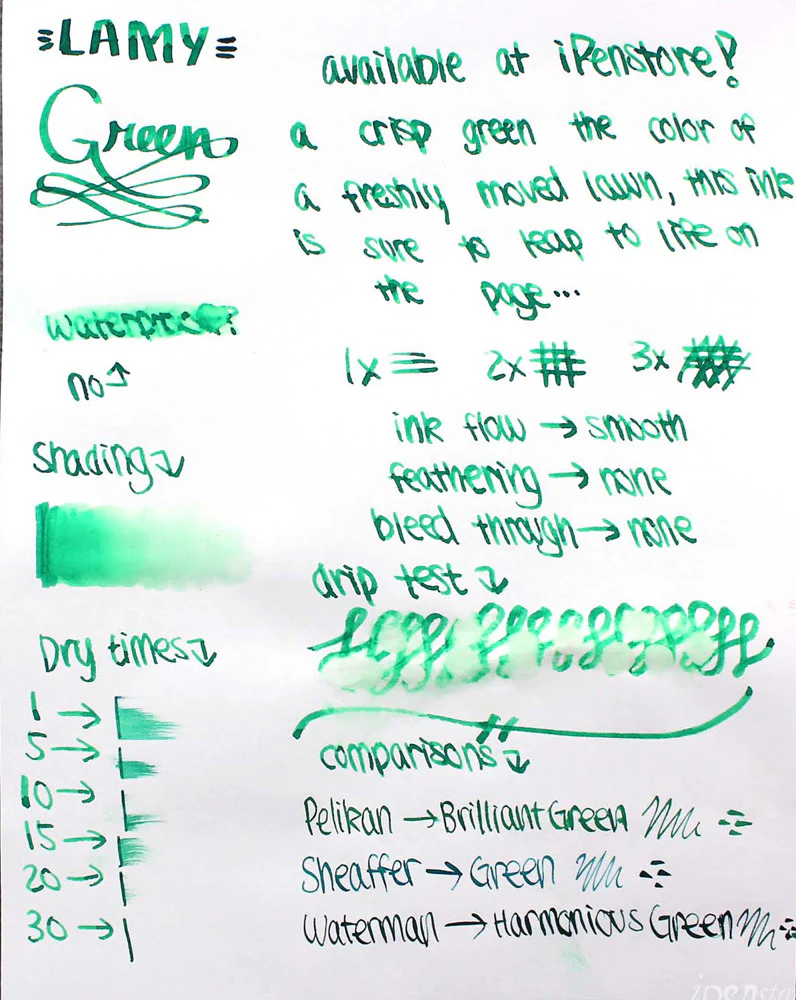 LAMY
Green
available at iPenstore!
a crisp green the color of
a freshly mowed lawn, this ink
is sure to leap to life on
the page...
waterproof?
no
1x 2x 3x
ink flow → smooth
feathering → none
bleed through → none
shading
drip test
Dry times
1 →
5 →
10 →
15 →
20 →
30 →
comparisons
Pelikan → Brilliant Green
Sheaffer → Green
Waterman → Harmonious Green